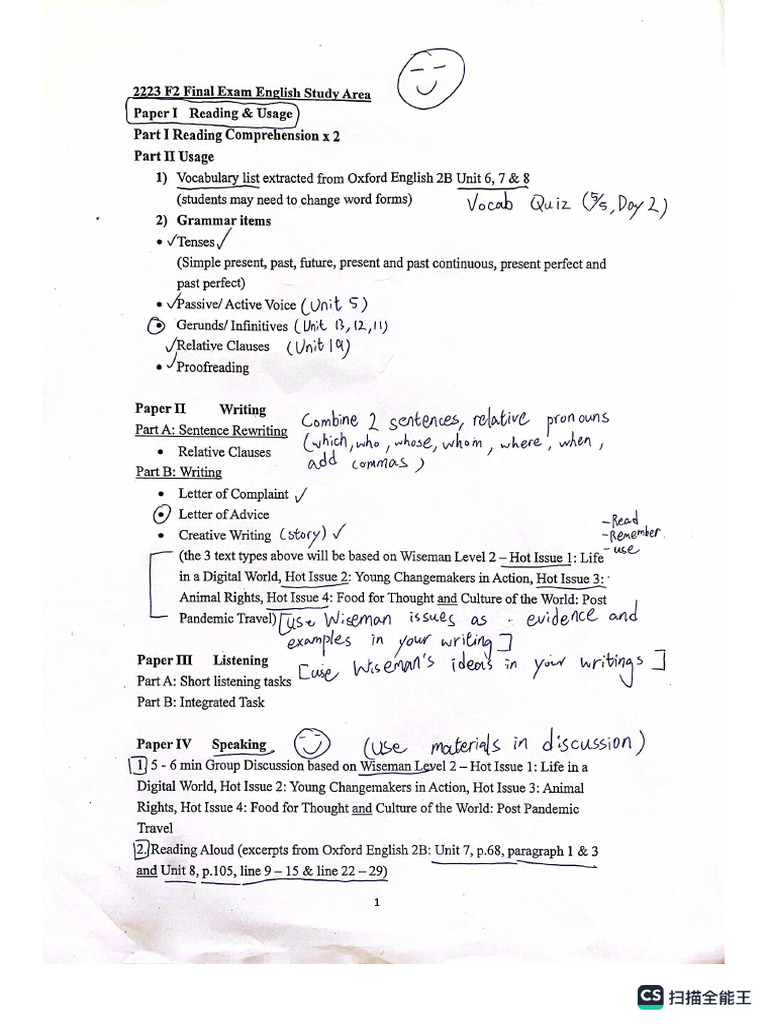 2223 F2 Final Exam English Study Area
Paper I Reading & Usage
Part I Reading Comprehension x 2
Part II Usage
1) Vocabulary list extracted from Oxford English 2B Unit 6, 7 & 8
(students may need to change word forms)
Vocab Quiz (5/5, Day 2)
2) Grammar items
• ✓Tenses✓
(Simple present, past, future, present and past continuous, present perfect and
past perfect)
• ✓Passive/ Active Voice (Unit 5)
• Gerunds/ Infinitives (Unit 13, 12, 11)
✓Relative Clauses (Unit 19)
• ✓Proofreading
Paper II Writing
Combine 2 sentences, relative pronouns
Part A: Sentence Rewriting
(which, who, whose, whom, where, when,
• Relative Clauses
add commas)
Part B: Writing
• Letter of Complaint ✓
• Letter of Advice
• Creative Writing (story) ✓
-Read
-Remember
-use
(the 3 text types above will be based on Wiseman Level 2 – Hot Issue 1: Life
in a Digital World, Hot Issue 2: Young Changemakers in Action, Hot Issue 3:
Animal Rights, Hot Issue 4: Food for Thought and Culture of the World: Post
Pandemic Travel) [use Wiseman issues as evidence and
examples in your writing]
Paper III Listening
[use Wiseman's ideas in your writings]
Part A: Short listening tasks
Part B: Integrated Task
Paper IV Speaking (use materials in discussion)
1) 5 - 6 min Group Discussion based on Wiseman Level 2 – Hot Issue 1: Life in a
Digital World, Hot Issue 2: Young Changemakers in Action, Hot Issue 3: Animal
Rights, Hot Issue 4: Food for Thought and Culture of the World: Post Pandemic
Travel
2. Reading Aloud (excerpts from Oxford English 2B: Unit 7, p.68, paragraph 1 & 3
and Unit 8, p.105, line 9 – 15 & line 22 – 29)
1
CS 扫描全能王